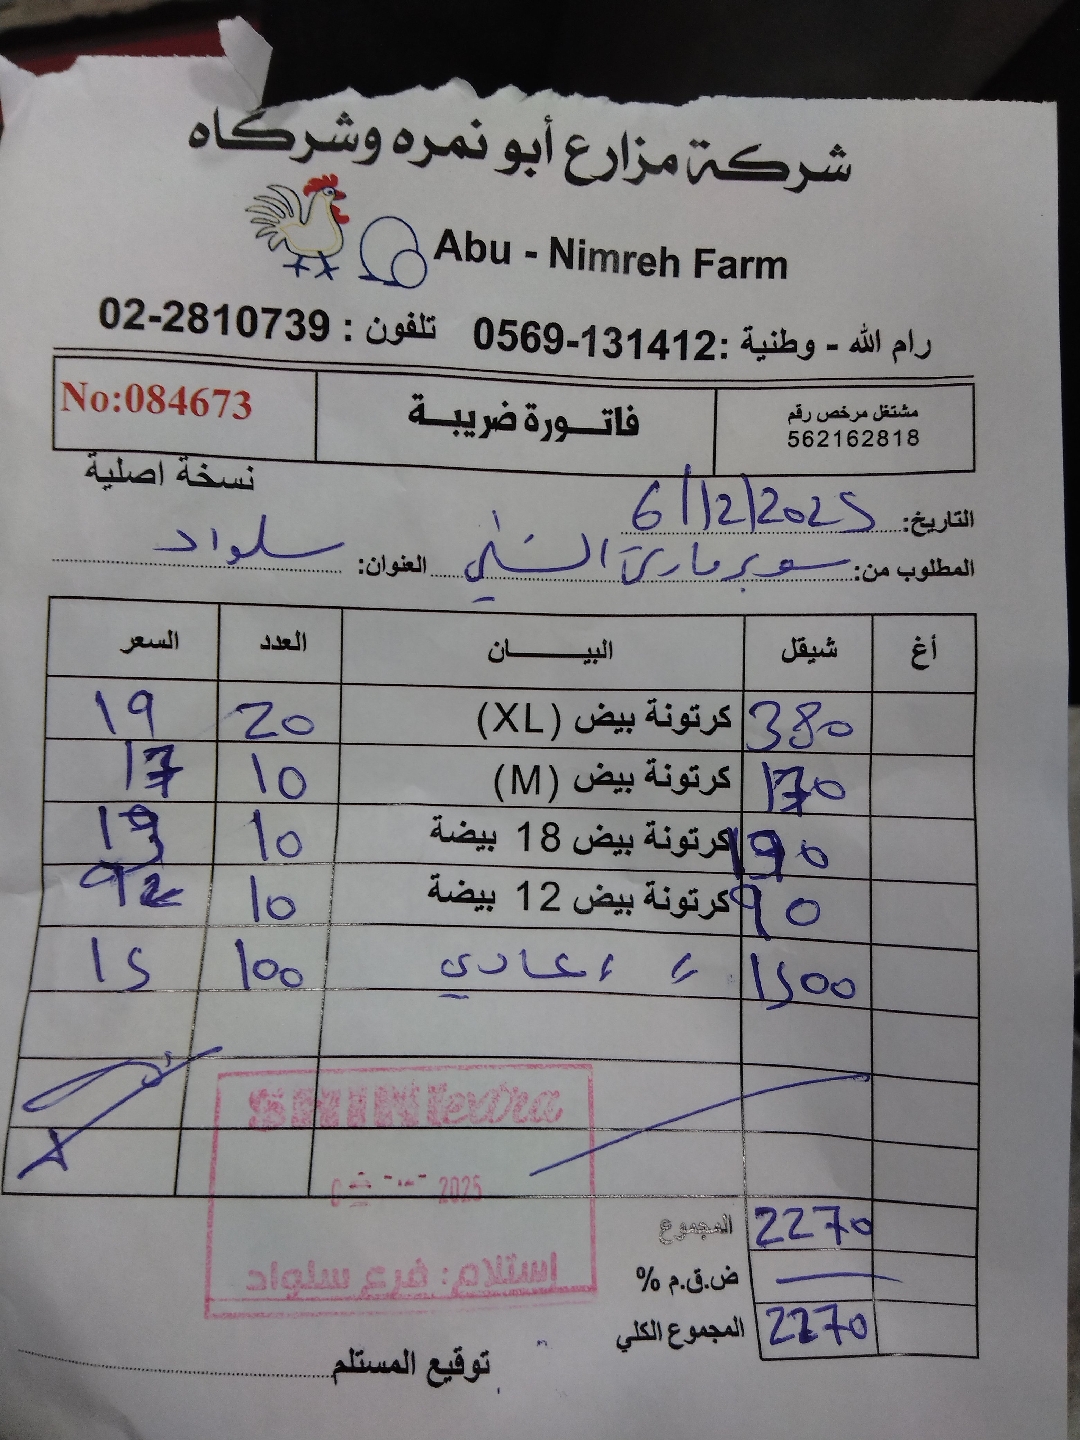 شركة مزارع أبو نمره وشركاه
Abu - Nimreh Farm
رام الله - وطنية :0569-131412 تلفون : 02-2810739
مشتغل مرخص رقم 562162818
فاتـــورة ضريبـــة
No:084673
نسخة اصلية
التاريخ: 6/12/2025
المطلوب من: سوبر ماركت الشني العنوان: سلواد
أغ شيقل البيـــــــان العدد السعر
380 كرتونة بيض (XL) 20 19
170 كرتونة بيض (M) 10 17
190 كرتونة بيض 18 بيضة 10 19
90 كرتونة بيض 12 بيضة 10
1500 〃 〃 عادي 100 15
SHINI extra
2025
إستلام: فرع سلواد
المجموع 2270
ض.ق.م %
المجموع الكلي 2270
توقيع المستلم